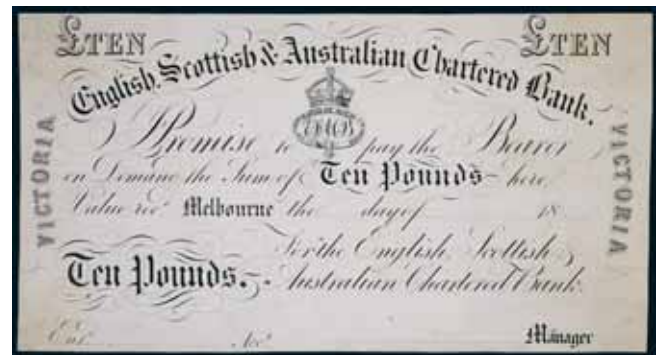 £TEN £TEN
English, Scottish & Australian Chartered Bank.
VICTORIA
VICTORIA
I Promise to pay the Bearer
on Demand the Sum of Ten Pounds here
Value recd Melbourne the day of 18
For the English, Scottish &
Ten Pounds. Australian Chartered Bank.
Entd
Manager